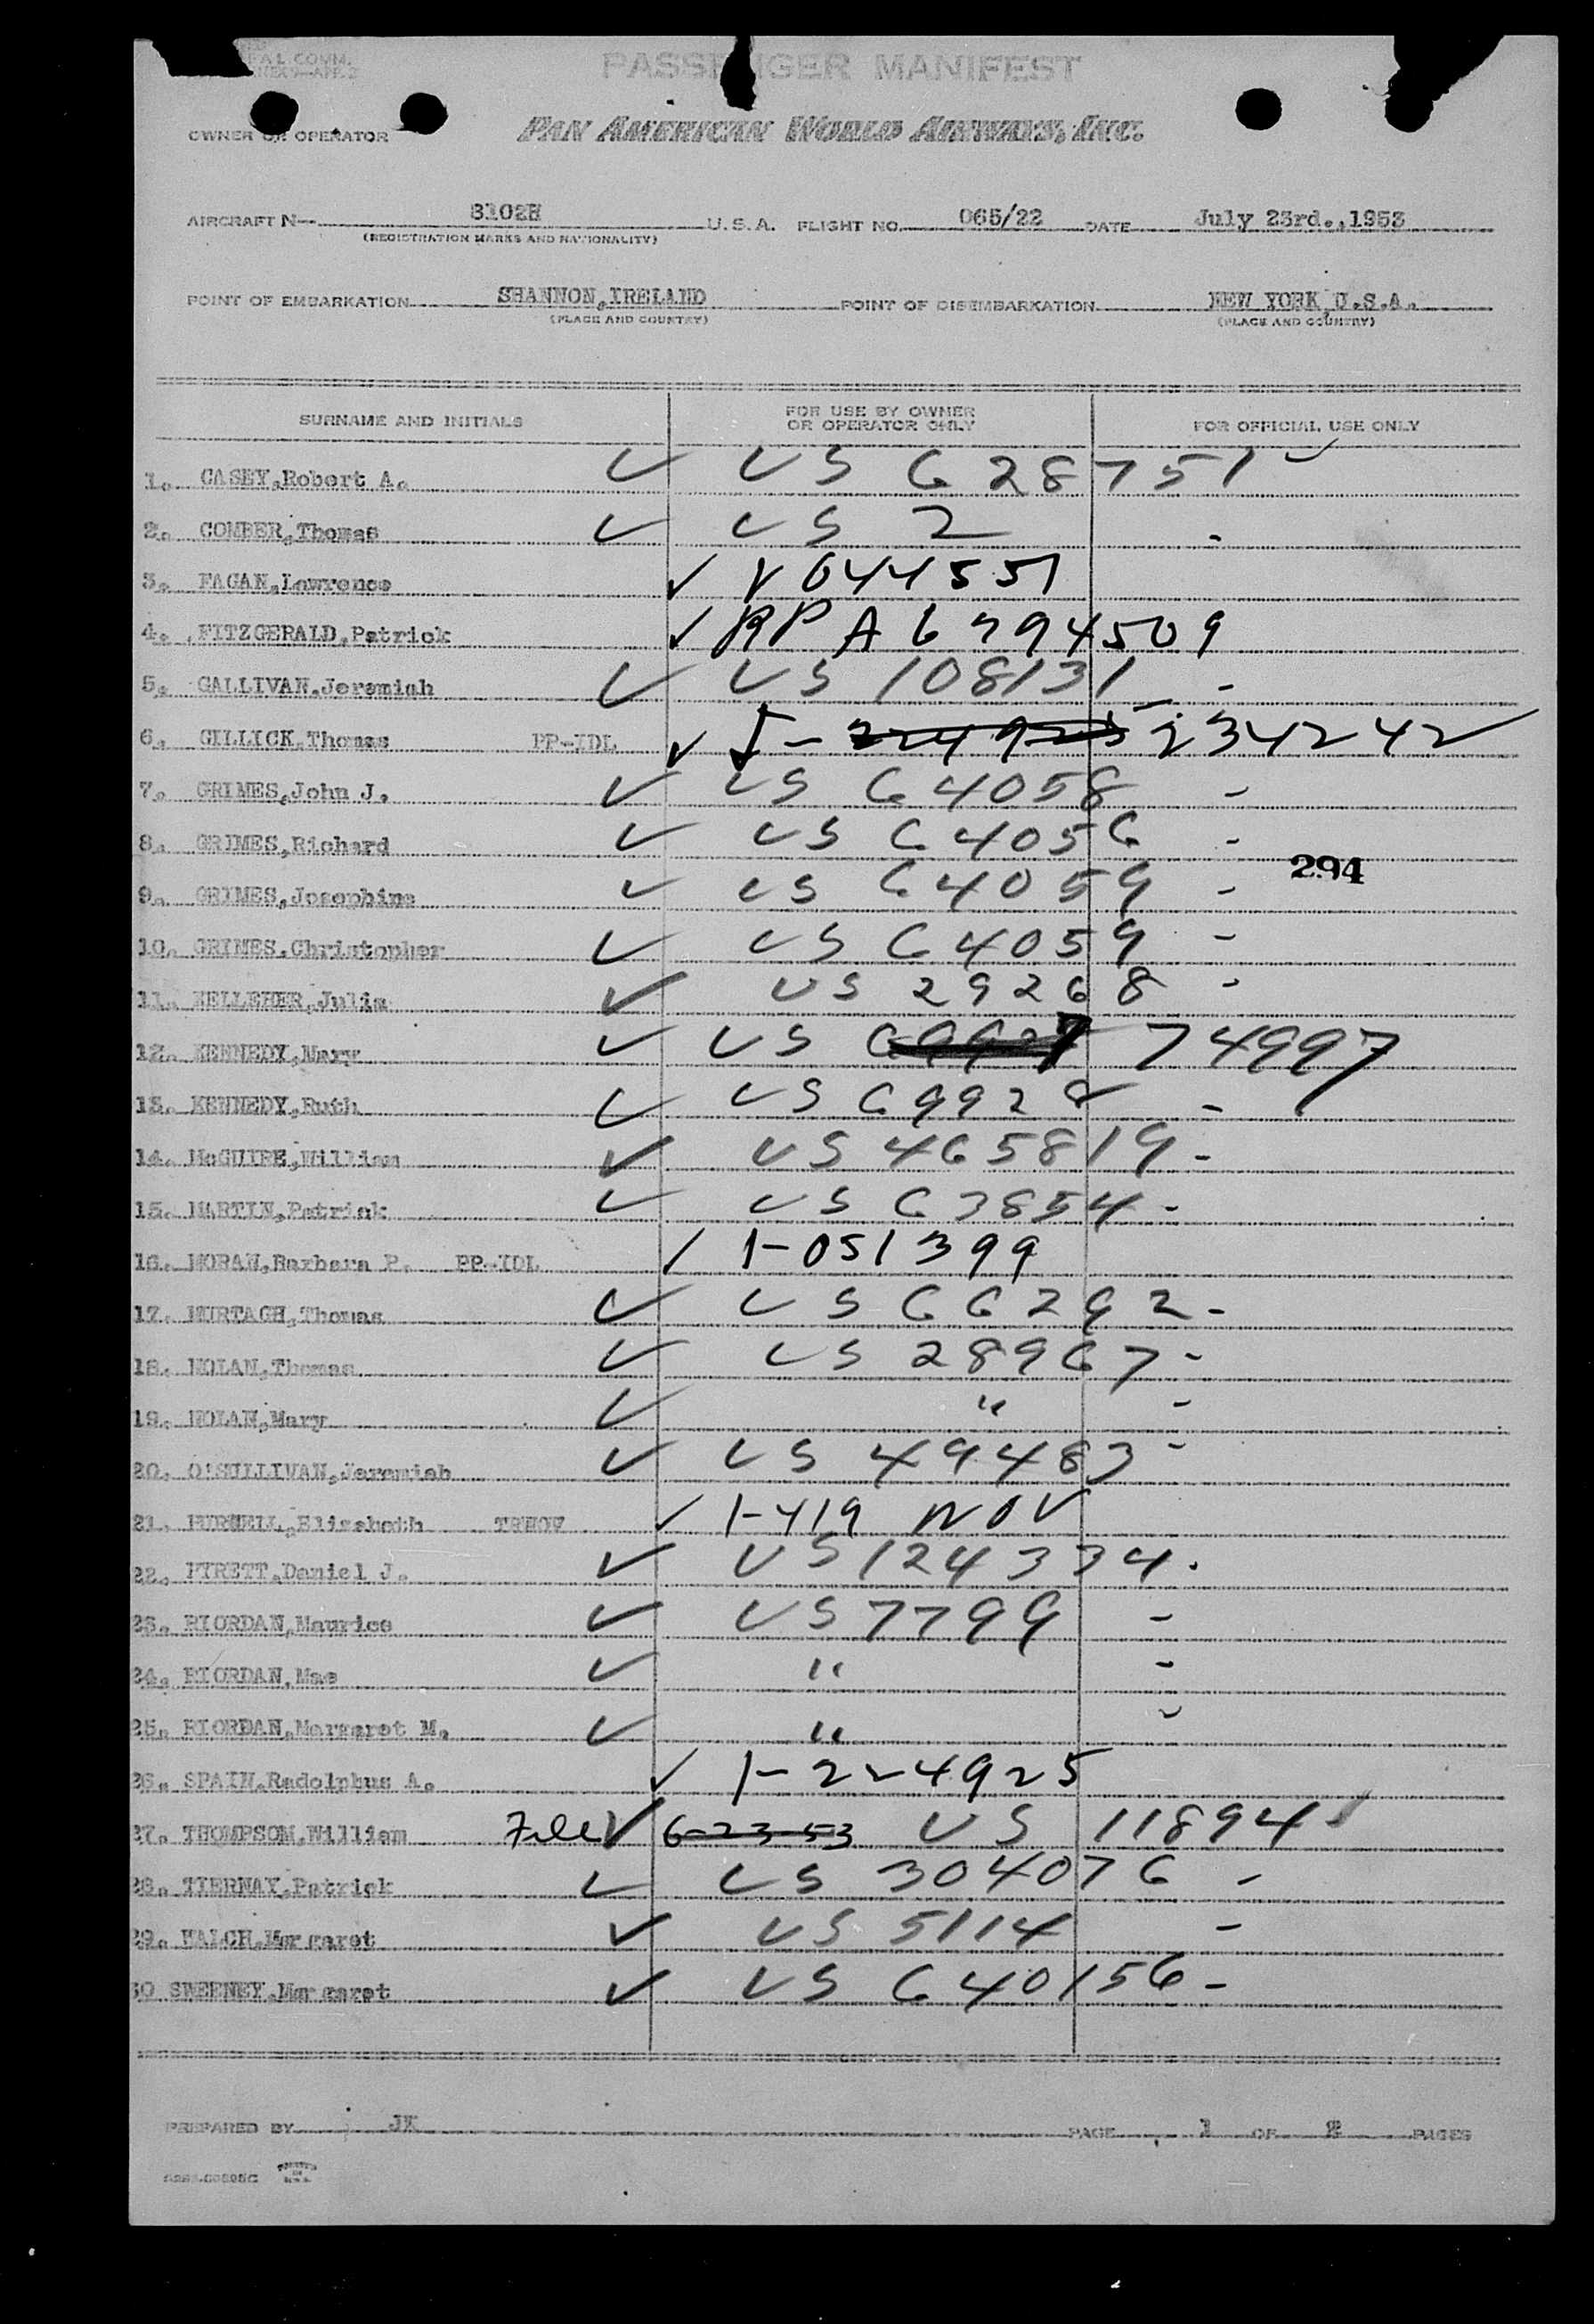 PASSENGER MANIFEST
OWNER OR OPERATOR PAN AMERICAN WORLD AIRWAYS, INC.
AIRCRAFT N— 8102H U.S.A. FLIGHT NO. 065/22 DATE July 23rd.,1953
(REGISTRATION MARKS AND NATIONALITY)
POINT OF EMBARKATION SHANNON,IRELAND POINT OF DISEMBARKATION NEW YORK,U.S.A.
(PLACE AND COUNTRY) (PLACE AND COUNTRY)
SURNAME AND INITIALS FOR USE BY OWNER OR OPERATOR ONLY FOR OFFICIAL USE ONLY
1. CASEY,Robert A. ✓ US 628751 ✓
2. COMBER,Thomas ✓ US 2 -
3. FAGAN,Lawrence ✓ V644551
4. FITZGERALD,Patrick ✓ RP A6794509
5. GALLIVAN,Jeremiah ✓ US 108131 -
6. GILLICK,Thomas PP-IDL ✓ I-224925 234242
7. GRIMES,John J. ✓ US 64058 -
8. GRIMES,Richard ✓ US 64056 -
294
9. GRIMES,Josephine ✓ US 64059 -
10. GRIMES,Christopher ✓ US 64059 -
11. KELLEHER,Julia ✓ US 29268 -
12. KENNEDY,Mary ✓ US 69927 74997
13. KENNEDY,Ruth ✓ US 69928 -
14. McGUIRE,William ✓ US 465819 -
15. MARTIN,Patrick ✓ US 63854 -
16. MORAN,Barbara P. PP-IDL ✓ 1-051399
17. MURTAGH,Thomas ✓ US 66292 -
18. NOLAN,Thomas ✓ US 28967 -
19. NOLAN,Mary ✓ " -
20. O'SULLIVAN,Jeremiah ✓ US 49483 -
21. PURNELL,Elizabeth ✓ 1-419 NOV
22. PYRETT,Daniel J. ✓ US 124334 -
23. RIORDAN,Maurice ✓ US 7799 -
24. RIORDAN,Mae ✓ " -
25. RIORDAN,Margaret M. ✓ " -
26. SPAIN,Radolphus A. ✓ 1-224925
27. THOMPSON,William ✓ 6-23-53 US 11894 ✓
28. TIERNAY,Patrick ✓ US 304076 -
29. WALCH,Margaret ✓ US 5114 -
30 SWEENEY,Margaret ✓ US 640156 -
PREPARED BY JK PAGE 1 OF 2 PAGES